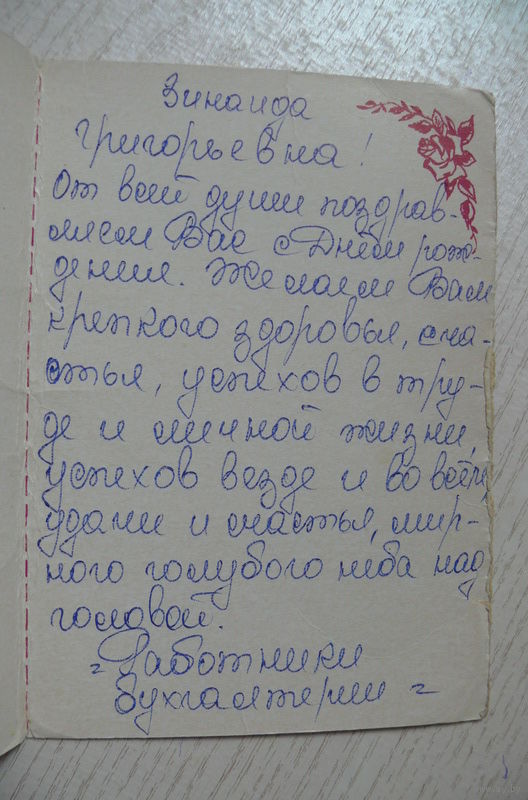 Зинаида
Григорьевна!
От всей души поздрав-
ляем Вас с Днём рож-
дения. Желаем Вам
крепкого здоровья, сча-
стья, успехов в тру-
де и личной жизни,
успехов везде и во всём,
удачи и счастья, мир-
ного голубого неба над
головой.
= Работники
бухгалтерии =